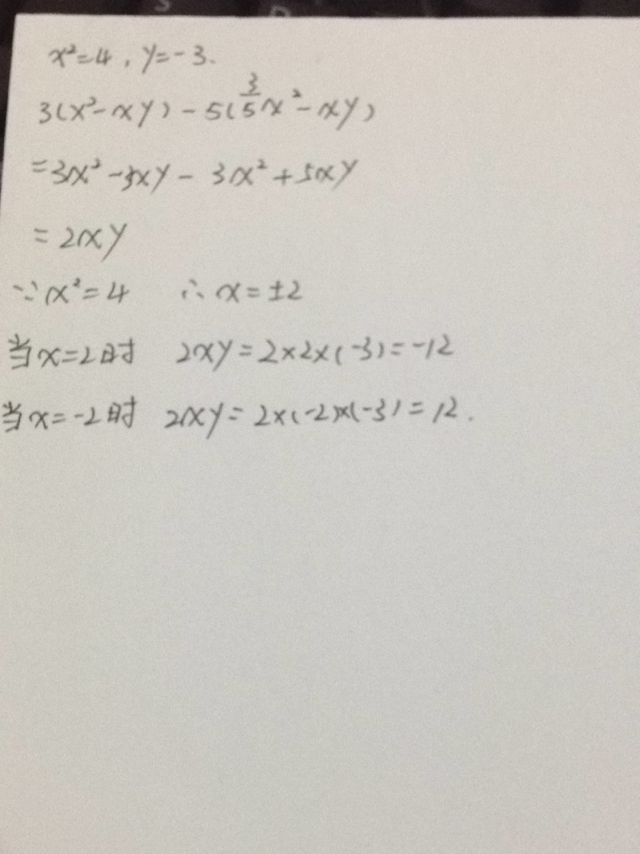 x²=4, y=-3.
3(x²-xy)-5(3/5x²-xy)
=3x²-3xy-3x²+5xy
=2xy
∵x²=4 ∴x=±2
当x=2时 2xy=2×2×(-3)=-12
当x=-2时 2xy=2×(-2)×(-3)=12.